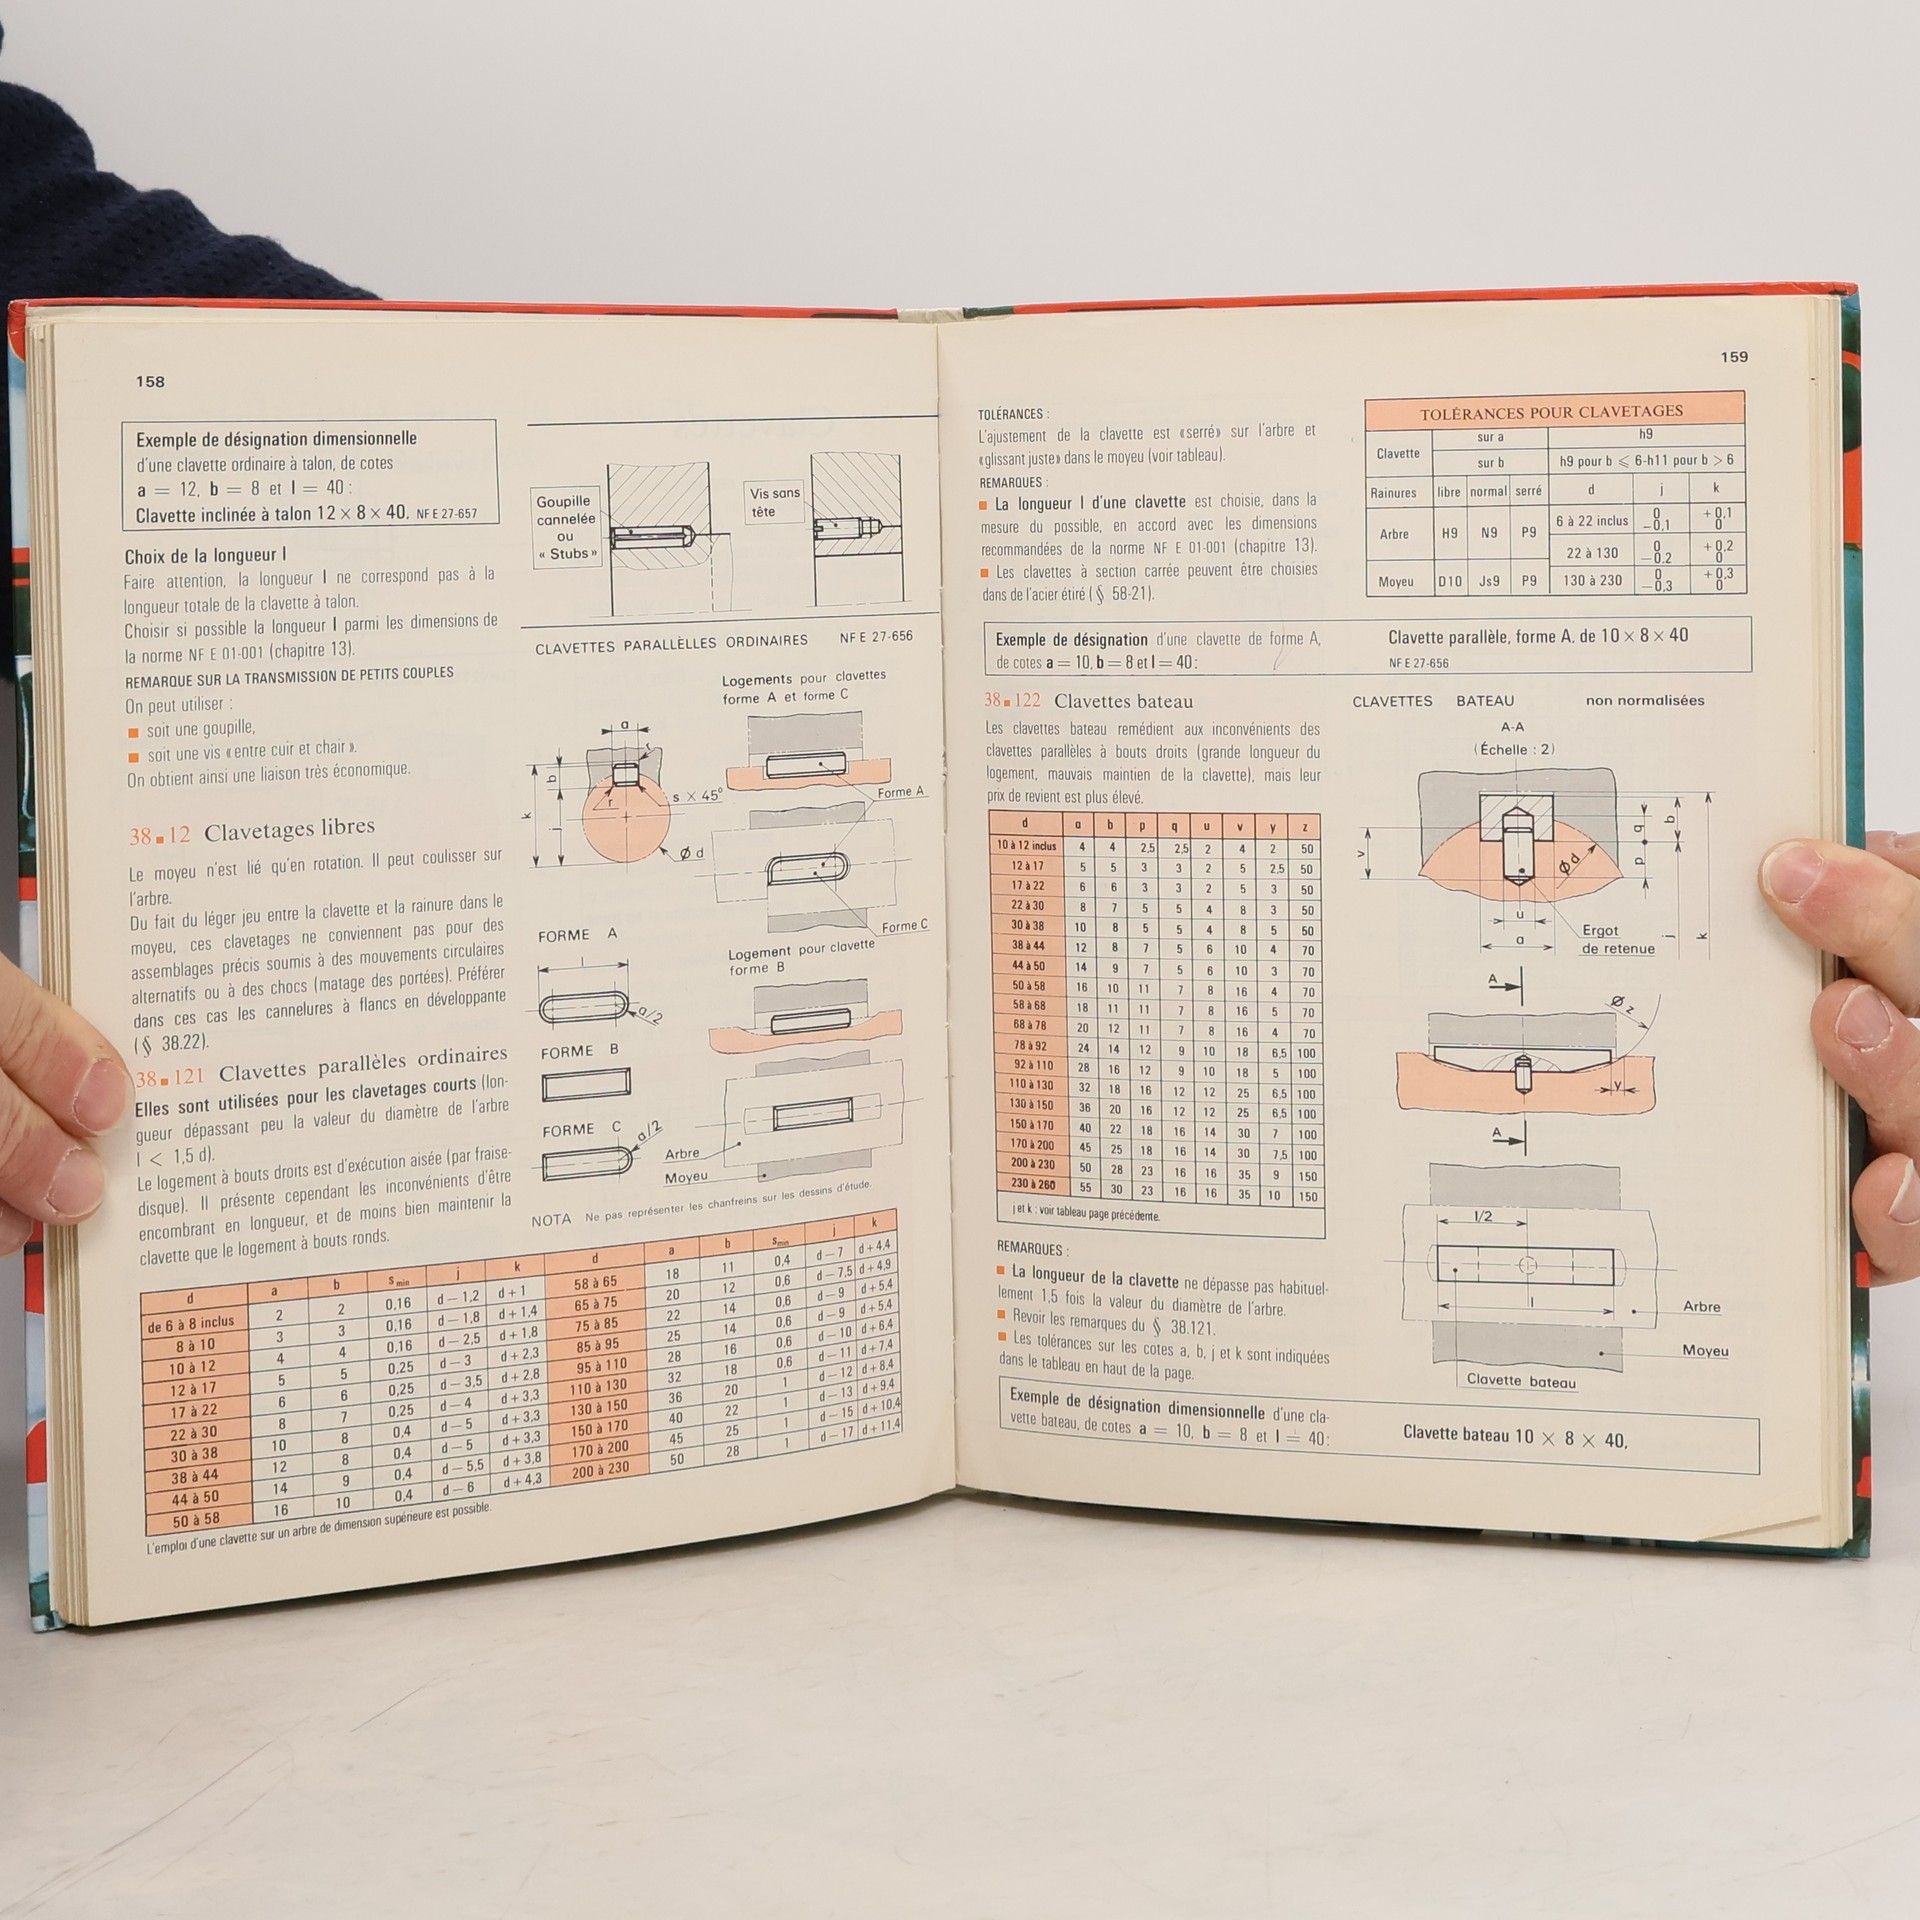 158
Exemple de désignation dimensionnelle
d'une clavette ordinaire à talon, de cotes
a = 12, b = 8 et l = 40 :
Clavette inclinée à talon 12 × 8 × 40. NF E 27-657
Choix de la longueur l
Faire attention, la longueur l ne correspond pas à la
longueur totale de la clavette à talon.
Choisir si possible la longueur l parmi les dimensions de
la norme NF E 01-001 (chapitre 13).
REMARQUE SUR LA TRANSMISSION DE PETITS COUPLES
On peut utiliser :
■ soit une goupille,
■ soit une vis «entre cuir et chair».
On obtient ainsi une liaison très économique.
38■12 Clavetages libres
Le moyeu n'est lié qu'en rotation. Il peut coulisser sur
l'arbre.
Du fait du léger jeu entre la clavette et la rainure dans le
moyeu, ces clavetages ne conviennent pas pour des
assemblages précis soumis à des mouvements circulaires
alternatifs ou à des chocs (matage des portées). Préférer
dans ces cas les cannelures à flancs en développante
(§ 38.22).
38■121 Clavettes parallèles ordinaires
Elles sont utilisées pour les clavetages courts (lon-
gueur dépassant peu la valeur du diamètre de l'arbre
l < 1,5 d).
Le logement à bouts droits est d'exécution aisée (par fraise-
disque). Il présente cependant les inconvénients d'être
encombrant en longueur, et de moins bien maintenir la
clavette que le logement à bouts ronds.
Goupille
cannelée
ou
« Stubs »
Vis sans
tête
CLAVETTES PARALLÈLLES ORDINAIRES NF E 27-656
Logements pour clavettes
forme A et forme C
a
r
b
k
j
r
s × 45°
Ø d
Forme A
Forme C
FORME A
l
a/2
FORME B
FORME C
a/2
Logement pour clavette
forme B
Arbre
Moyeu
NOTA Ne pas représenter les chanfreins sur les dessins d'étude.
d a b s min j k
de 6 à 8 inclus 2 2 0,16 d – 1,2 d + 1
8 à 10 3 3 0,16 d – 1,8 d + 1,4
10 à 12 4 4 0,16 d – 2,5 d + 1,8
12 à 17 5 5 0,25 d – 3 d + 2,3
17 à 22 6 6 0,25 d – 3,5 d + 2,8
22 à 30 8 7 0,25 d – 4 d + 3,3
30 à 38 10 8 0,4 d – 5 d + 3,3
38 à 44 12 8 0,4 d – 5 d + 3,3
44 à 50 14 9 0,4 d – 5,5 d + 3,8
50 à 58 16 10 0,4 d – 6 d + 4,3
d a b s min j k
58 à 65 18 11 0,4 d – 7 d + 4,4
65 à 75 20 12 0,6 d – 7,5 d + 4,9
75 à 85 22 14 0,6 d – 9 d + 5,4
85 à 95 25 14 0,6 d – 9 d + 5,4
95 à 110 28 16 0,6 d – 10 d + 6,4
110 à 130 32 18 0,6 d – 11 d + 7,4
130 à 150 36 20 1 d – 12 d + 8,4
150 à 170 40 22 1 d – 13 d + 9,4
170 à 200 45 25 1 d – 15 d + 10,4
200 à 230 50 28 1 d – 17 d + 11,4
L'emploi d'une clavette sur un arbre de dimension supérieure est possible.
159
TOLÉRANCES :
L'ajustement de la clavette est «serré» sur l'arbre et
«glissant juste» dans le moyeu (voir tableau).
REMARQUES :
■ La longueur l d'une clavette est choisie, dans la
mesure du possible, en accord avec les dimensions
recommandées de la norme NF E 01-001 (chapitre 13).
■ Les clavettes à section carrée peuvent être choisies
dans de l'acier étiré (§ 58-21).
TOLÉRANCES POUR CLAVETAGES
Clavette sur a h9
sur b h9 pour b ⩽ 6-h11 pour b > 6
Rainures libre normal serré d j k
Arbre H9 N9 P9 6 à 22 inclus 0 –0,1 +0,1 0
22 à 130 0 –0,2 +0,2 0
Moyeu D10 Js9 P9 130 à 230 0 –0,3 +0,3 0
Exemple de désignation d'une clavette de forme A,
de cotes a = 10, b = 8 et l = 40 :
Clavette parallèle, forme A, de 10 × 8 × 40
NF E 27-656
38■122 Clavettes bateau
Les clavettes bateau remédient aux inconvénients des
clavettes parallèles à bouts droits (grande longueur du
logement, mauvais maintien de la clavette), mais leur
prix de revient est plus élevé.
d a b p q u v y z
10 à 12 inclus 4 4 2,5 2,5 2 4 2 50
12 à 17 5 5 3 3 2 5 2,5 50
17 à 22 6 6 3 3 2 5 3 50
22 à 30 8 7 5 5 4 8 3 50
30 à 38 10 8 5 5 4 8 5 50
38 à 44 12 8 7 5 6 10 4 70
44 à 50 14 9 7 5 6 10 3 70
50 à 58 16 10 11 7 8 16 4 70
58 à 68 18 11 11 7 8 16 5 70
68 à 78 20 12 11 7 8 16 4 70
78 à 92 24 14 12 9 10 18 6,5 100
92 à 110 28 16 12 9 10 18 5 100
110 à 130 32 18 16 12 12 25 6,5 100
130 à 150 36 20 16 12 12 25 6,5 100
150 à 170 40 22 18 16 14 30 7 100
170 à 200 45 25 18 16 14 30 7,5 100
200 à 230 50 28 23 16 16 35 9 150
230 à 260 55 30 23 16 16 35 10 150
j et k : voir tableau page précédente.
REMARQUES :
■ La longueur de la clavette ne dépasse pas habituel-
lement 1,5 fois la valeur du diamètre de l'arbre.
■ Revoir les remarques du § 38.121.
■ Les tolérances sur les cotes a, b, j et k sont indiquées
dans le tableau en haut de la page.
CLAVETTES BATEAU non normalisées
A-A
(Échelle : 2)
v
q
b
p
Ø d
u
a
j
k
Ergot
de retenue
A
Ø z
y
A
l/2
l
Arbre
Moyeu
Clavette bateau
Exemple de désignation dimensionnelle d'une cla-
vette bateau, de cotes a = 10, b = 8 et l = 40:
Clavette bateau 10 × 8 × 40,